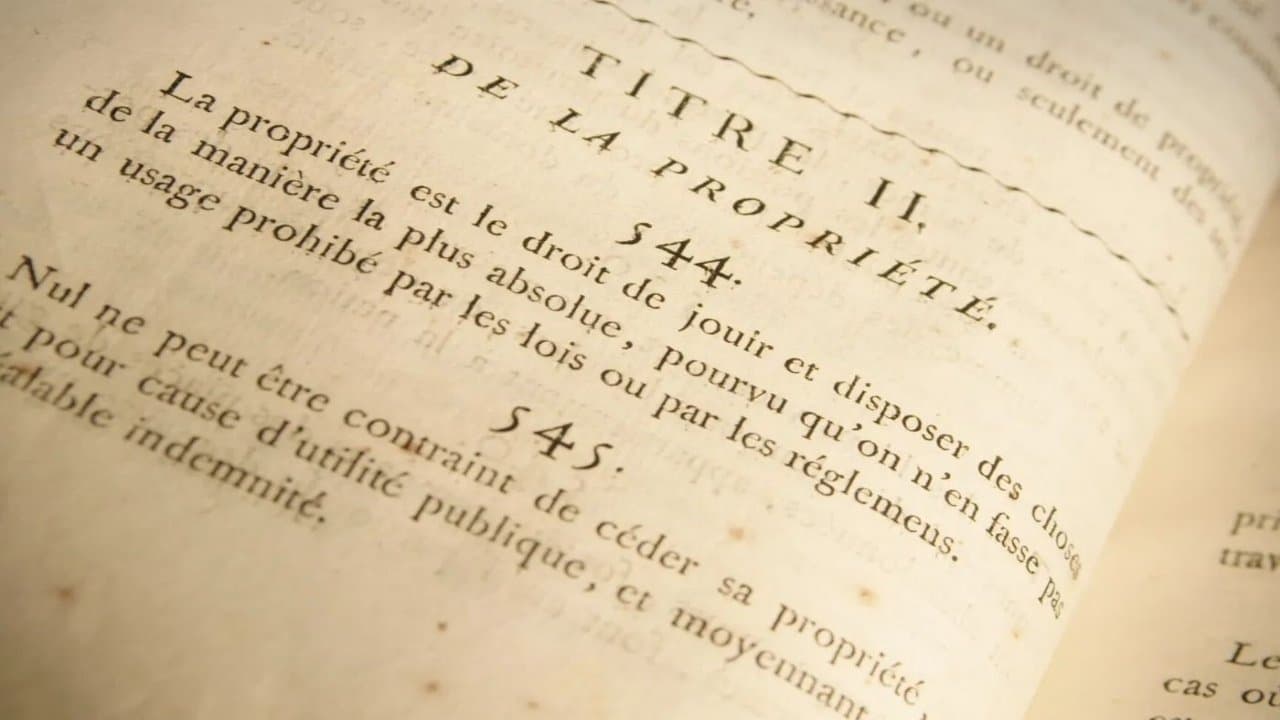 ou un droit de propriété,
issance, ou seulement des
TITRE II.
DE LA PROPRIÉTÉ.
544.
La propriété est le droit de jouir et disposer des choses
de la manière la plus absolue, pourvu qu'on n'en fasse pas
un usage prohibé par les lois ou par les réglemens.
545.
Nul ne peut être contraint de céder sa propriété,
t pour cause d'utilité publique, et moyennant
alable indemnité.
pri
trav
Le
cas où